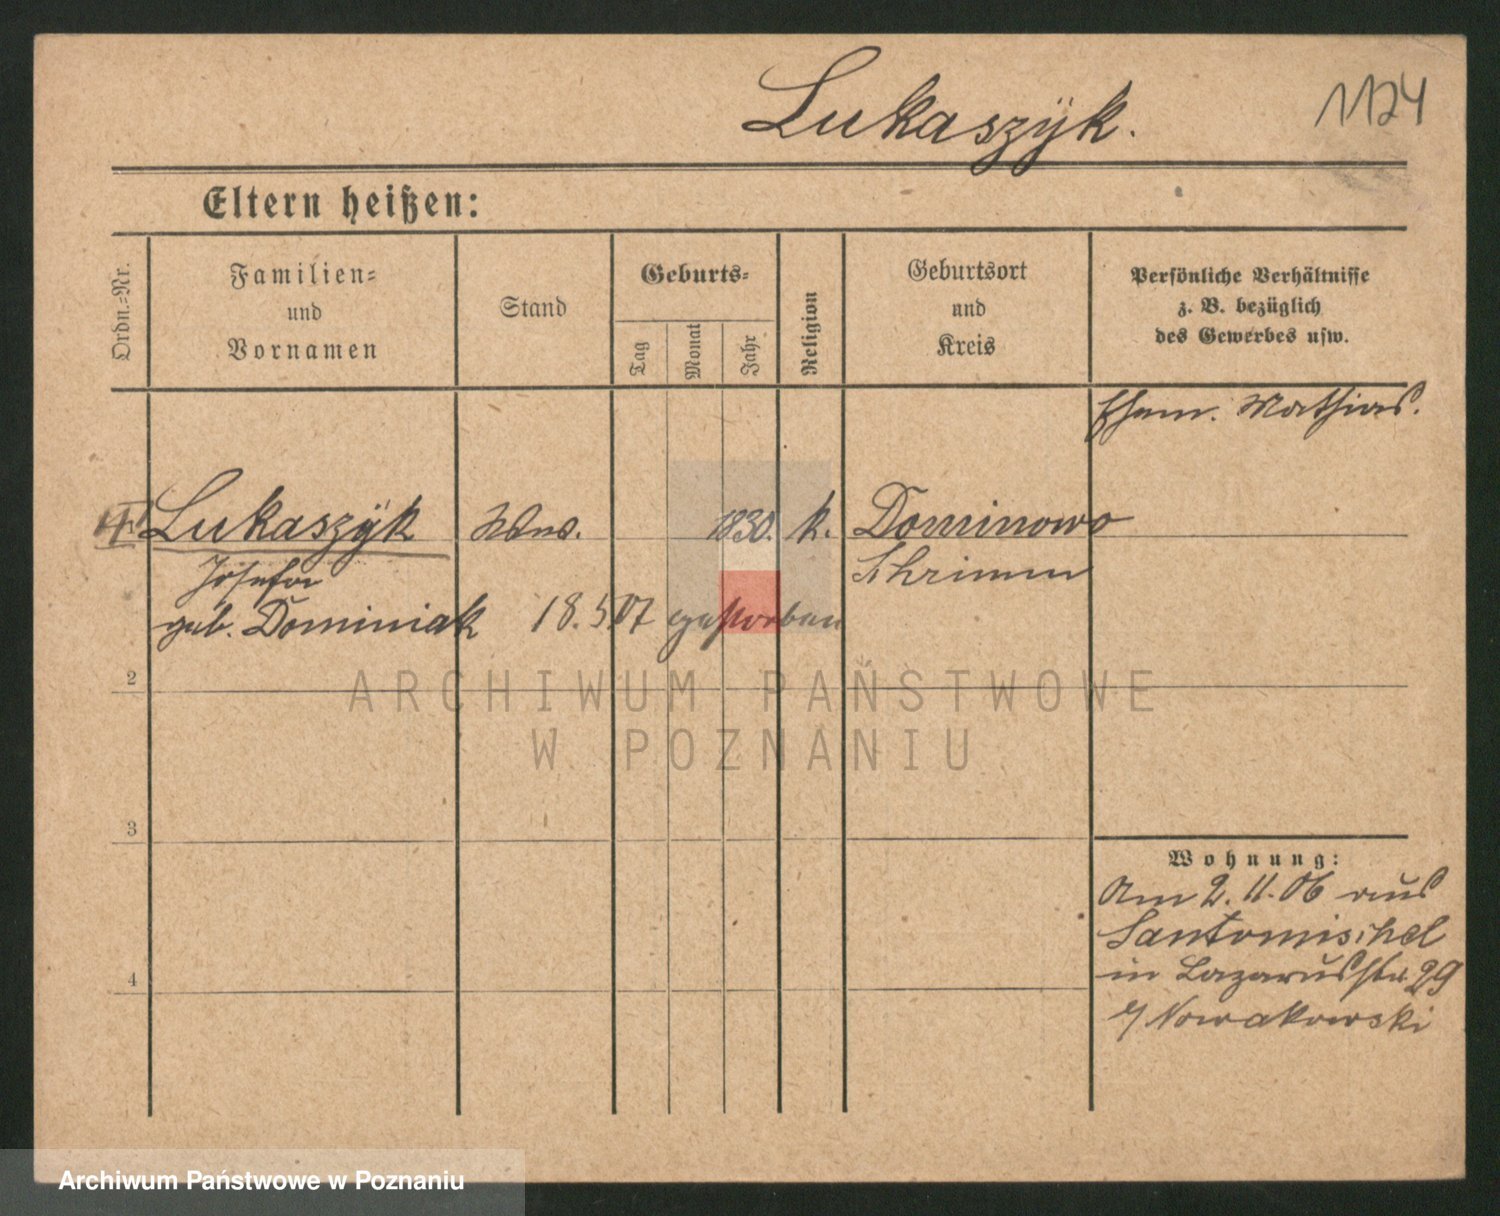 Lukaszÿk.
1124
Eltern heißen:
Ordn.-Nr.
Familien-
und
Vornamen
Stand
Geburts-
Tag
Monat
Jahr
Religion
Geburtsort
und
Kreis
Persönliche Verhältnisse
z. B. bezüglich
des Gewerbes usw.
Ehem. Mathias.
Lukaszÿk Wwe. 1830. k. Dominowo
Josefa Schrimm
geb. Dominiak 18.5.07 gestorben
2
ARCHIWUM PAŃSTWOWE
W POZNANIU
3
Wohnung:
Am 2.11.06 aus
Santomischel
4
in Lazarusstr. 29
b/ Nowakowski
Archiwum Państwowe w Poznaniu